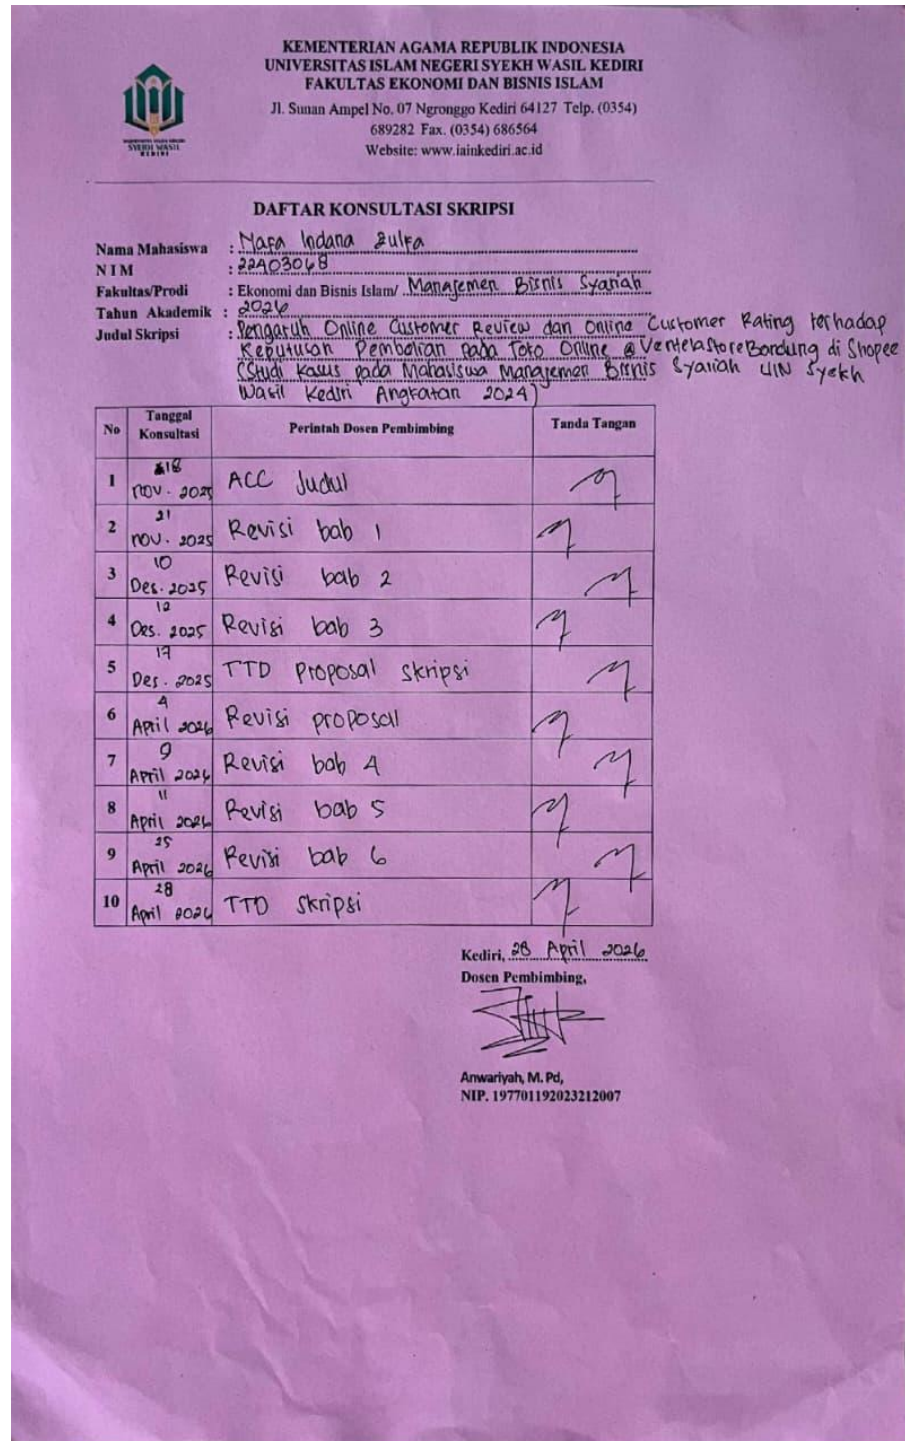 KEMENTERIAN AGAMA REPUBLIK INDONESIA
UNIVERSITAS ISLAM NEGERI SYEKH WASIL KEDIRI
FAKULTAS EKONOMI DAN BISNIS ISLAM
Jl. Sunan Ampel No. 07 Ngronggo Kediri 64127 Telp. (0354)
689282 Fax. (0354) 686564
Website: www.iainkediri.ac.id
SYEKH WASIL
KEDIRI
DAFTAR KONSULTASI SKRIPSI
Nama Mahasiswa : Mafa Indana Zulfa
NIM : 22403068
Fakultas/Prodi : Ekonomi dan Bisnis Islam/ Manajemen Bisnis Syariah
Tahun Akademik : 2026
Judul Skripsi : Pengaruh Online Customer Review dan Online Customer Rating terhadap
Keputusan Pembelian pada Toko Online @VentelaStoreBandung di Shopee
(Studi Kasus pada Mahasiswa Manajemen Bisnis Syariah UIN Syekh
Wasil Kediri Angkatan 2024)
No Tanggal Konsultasi Perintah Dosen Pembimbing Tanda Tangan
1 18 nov. 2025 ACC Judul
2 21 nov. 2025 Revisi bab 1
3 10 Des. 2025 Revisi bab 2
4 12 Des. 2025 Revisi bab 3
5 17 Des. 2025 TTD Proposal Skripsi
6 4 April 2026 Revisi proposal
7 9 April 2026 Revisi bab 4
8 11 April 2026 Revisi bab 5
9 25 April 2026 Revisi bab 6
10 28 April 2026 TTD Skripsi
Kediri, 28 April 2026
Dosen Pembimbing,
Anwariyah, M. Pd,
NIP. 197701192023212007